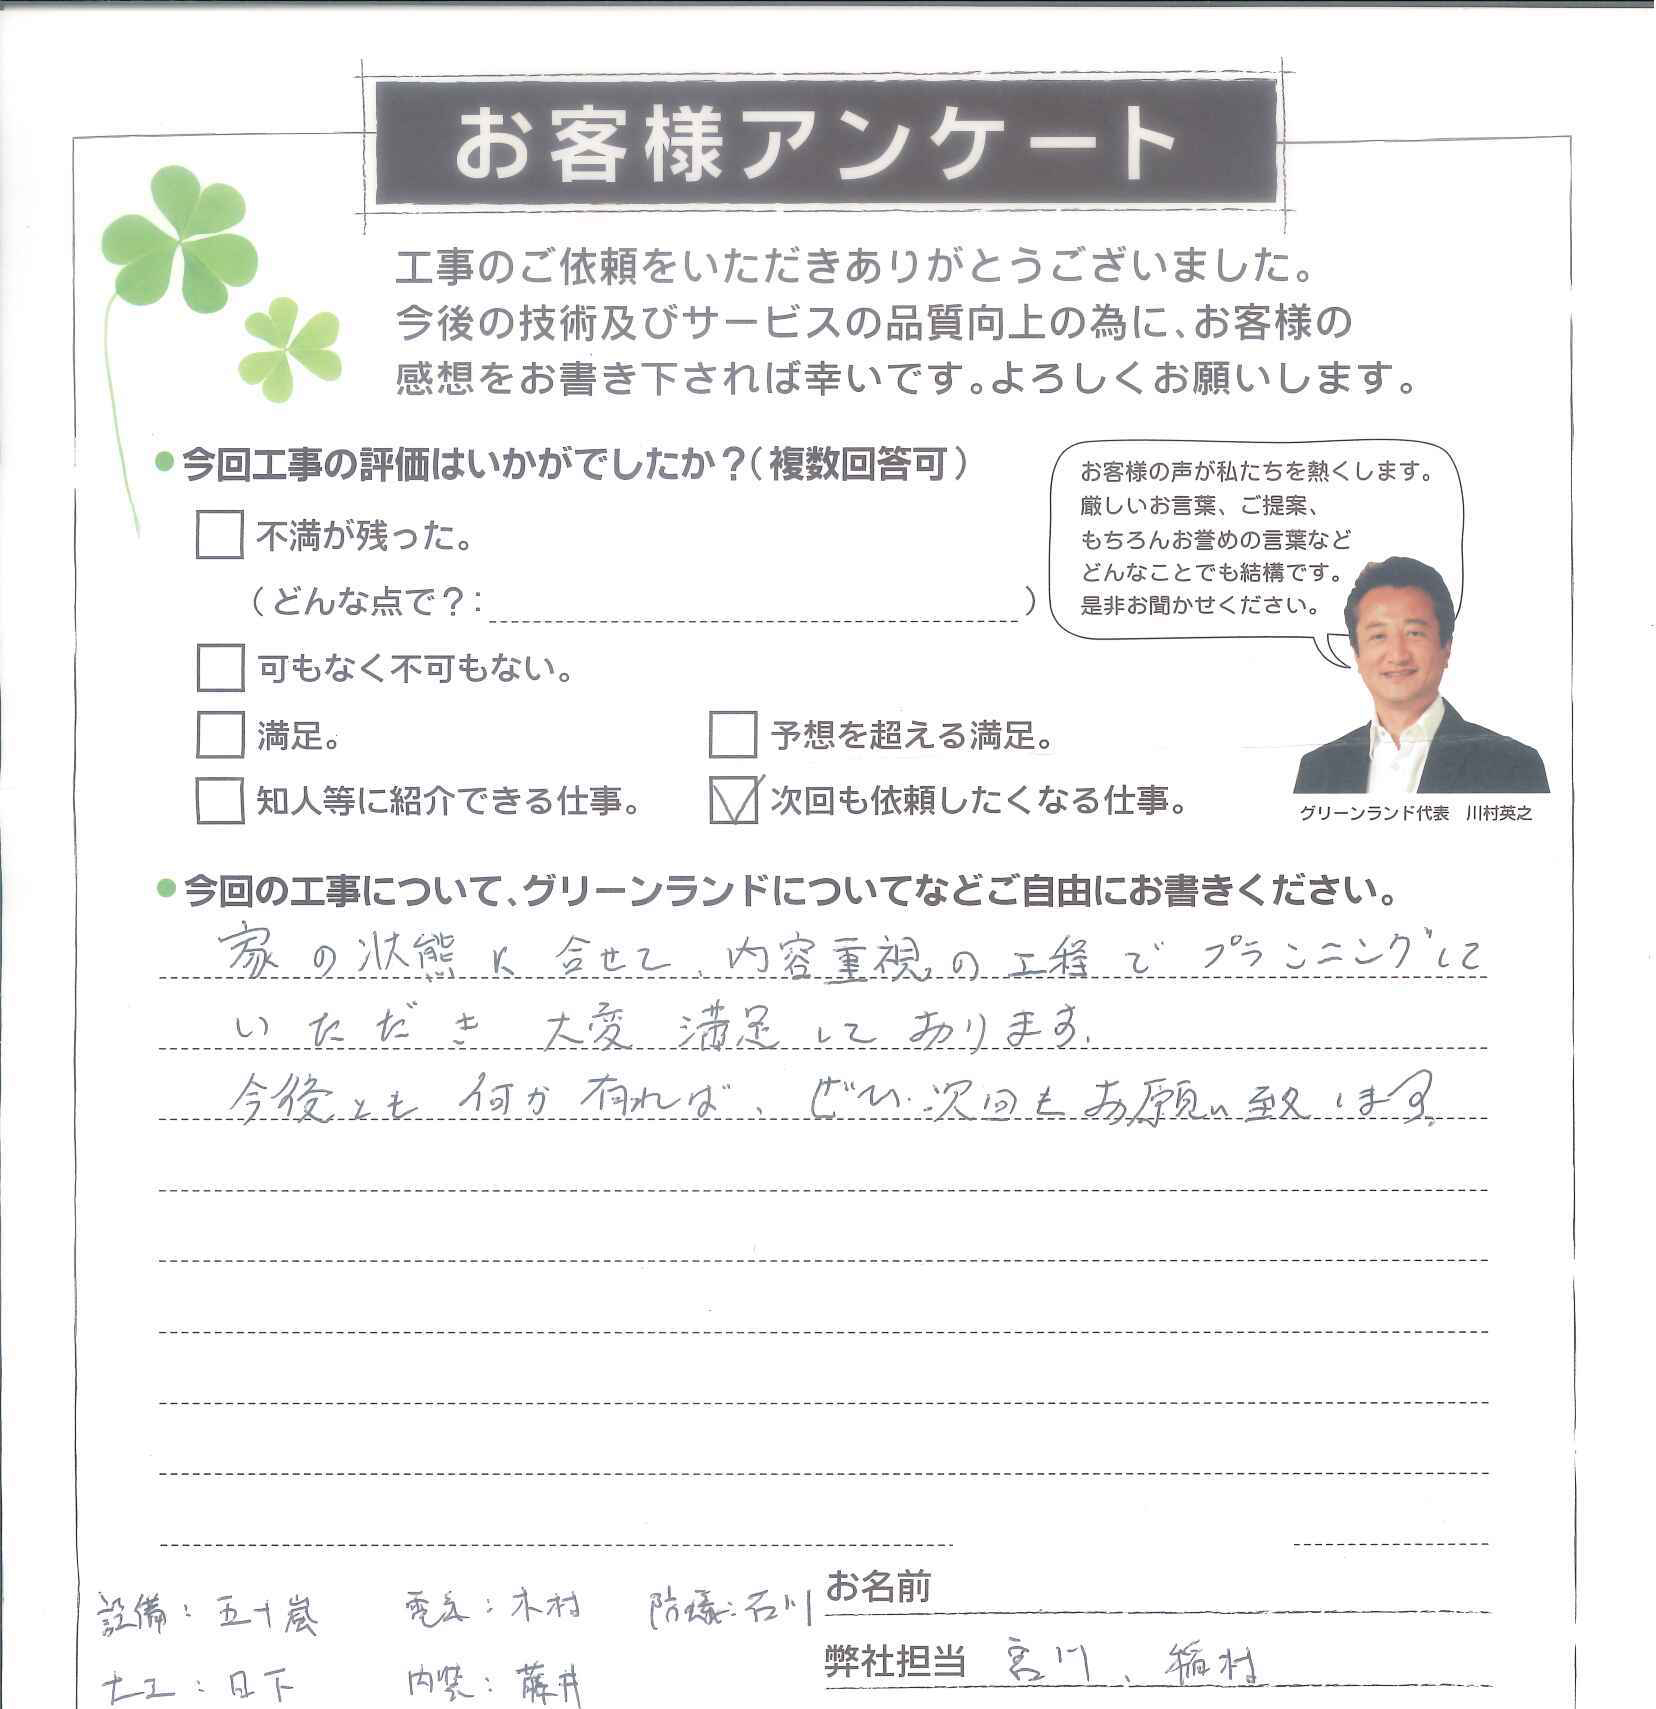 お客様アンケート
工事のご依頼をいただきありがとうございました。
今後の技術及びサービスの品質向上の為に、お客様の
感想をお書き下されば幸いです。よろしくお願いします。
今回工事の評価はいかがでしたか？（複数回答可）
不満が残った。
（どんな点で？： ）
可もなく不可もない。
満足。
予想を超える満足。
知人等に紹介できる仕事。
次回も依頼したくなる仕事。
お客様の声が私たちを熱くします。
厳しいお言葉、ご提案、
もちろんお誉めの言葉など
どんなことでも結構です。
是非お聞かせください。
グリーンランド代表　川村英之
今回の工事について、グリーンランドについてなどご自由にお書きください。
家の状態に合せて、内容重視の工程でプランニングして
いただき大変満足しております。
今後とも何か有れば、ぜひ次回もお願い致します。
設備：五十嵐　電気：木村　防蟻：石川
大工：日下　内装：藤井
お名前
弊社担当　宮川、稲村